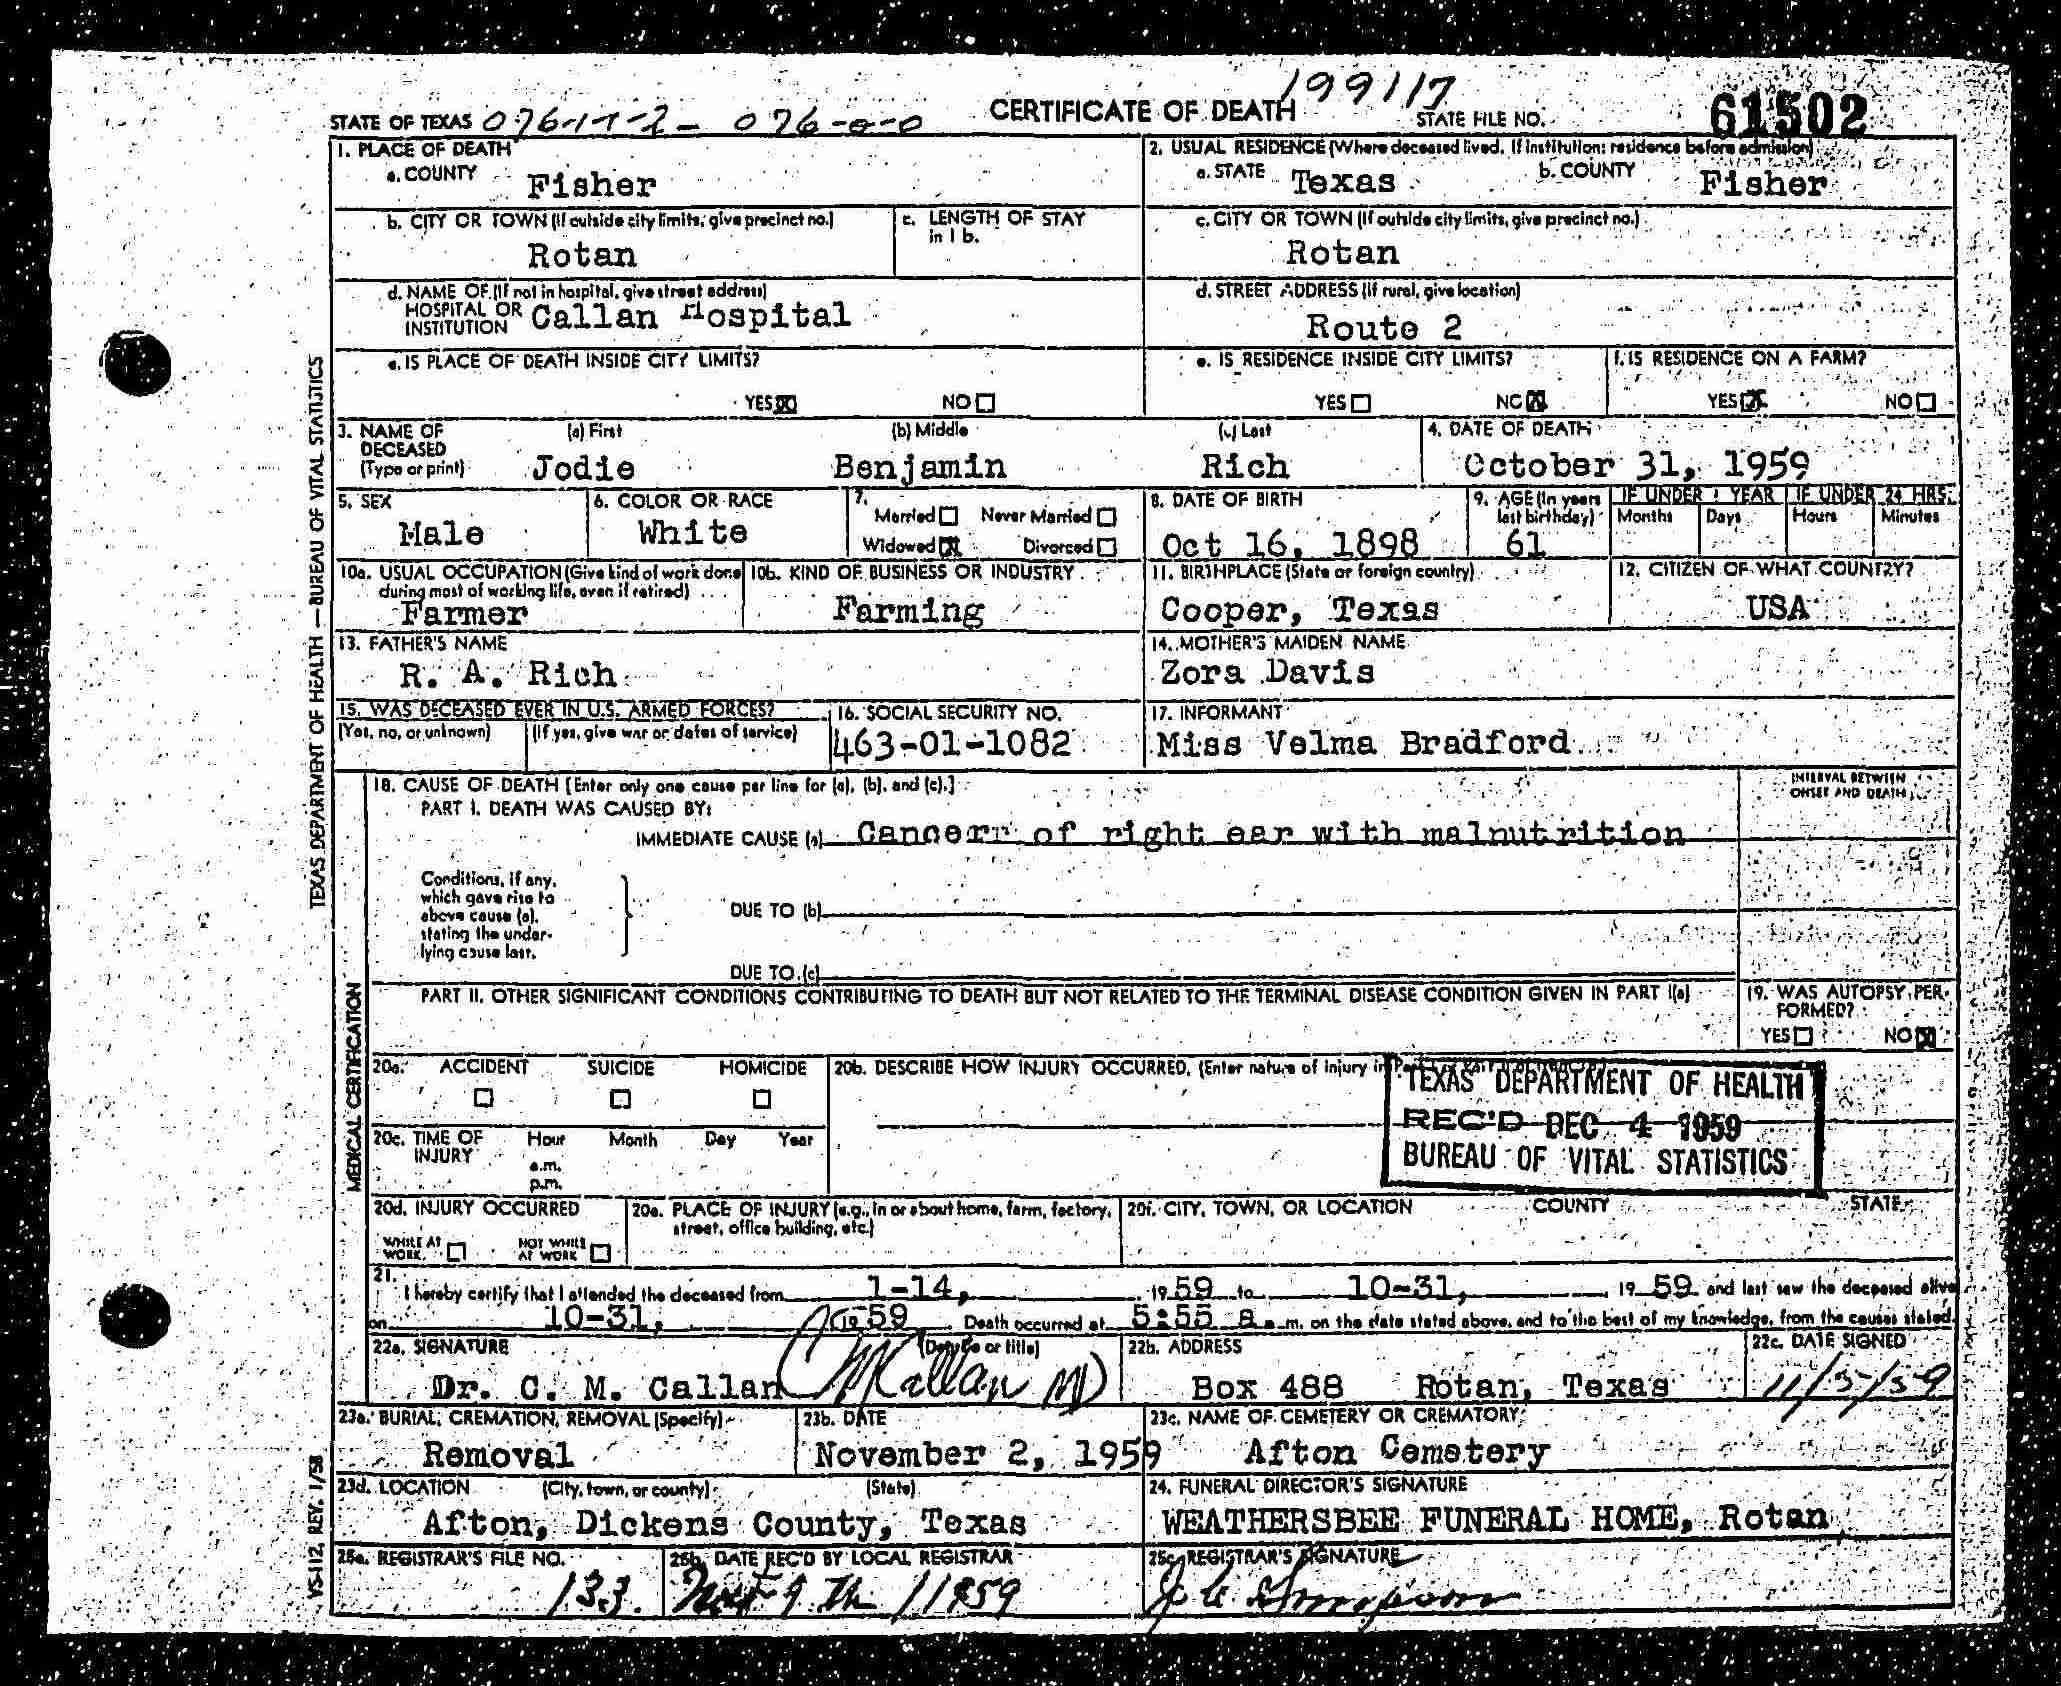 199117
STATE OF TEXAS 076-17-2- 076-0-0 CERTIFICATE OF DEATH STATE FILE NO. 61502
1. PLACE OF DEATH
a. COUNTY Fisher
2. USUAL RESIDENCE (Where deceased lived. If institution: residence before admission)
a. STATE Texas b. COUNTY Fisher
b. CITY OR TOWN (If outside city limits, give precinct no.)
Rotan
c. LENGTH OF STAY
in 1 b.
c. CITY OR TOWN (If outside city limits, give precinct no.)
Rotan
d. NAME OF (If not in hospital, give street address)
HOSPITAL OR
INSTITUTION Callan Hospital
d. STREET ADDRESS (If rural, give location)
Route 2
e. IS PLACE OF DEATH INSIDE CITY LIMITS?
YES NO
e. IS RESIDENCE INSIDE CITY LIMITS?
YES NO
f. IS RESIDENCE ON A FARM?
YES NO
3. NAME OF
DECEASED
(Type or print)
(a) First (b) Middle (c) Last
Jodie Benjamin Rich
4. DATE OF DEATH
October 31, 1959
5. SEX
Male
6. COLOR OR RACE
White
7.
Married Never Married
Widowed Divorced
8. DATE OF BIRTH
Oct 16, 1898
9. AGE (In years
last birthday)
61
IF UNDER 1 YEAR
Months Days
IF UNDER 24 HRS.
Hours Minutes
10a. USUAL OCCUPATION (Give kind of work done
during most of working life, even if retired)
Farmer
10b. KIND OF BUSINESS OR INDUSTRY
Farming
11. BIRTHPLACE (State or foreign country)
Cooper, Texas
12. CITIZEN OF WHAT COUNTRY?
USA
13. FATHER'S NAME
R. A. Rich
14. MOTHER'S MAIDEN NAME
Zora Davis
15. WAS DECEASED EVER IN U.S. ARMED FORCES?
(Yes, no, or unknown) (If yes, give war or dates of service)
16. SOCIAL SECURITY NO.
463-01-1082
17. INFORMANT
Miss Velma Bradford
18. CAUSE OF DEATH [Enter only one cause per line for (a), (b), and (c).]
INTERVAL BETWEEN
ONSET AND DEATH
PART I. DEATH WAS CAUSED BY:
IMMEDIATE CAUSE (a) Cancerr of right ear with malnutrition
Conditions, if any,
which gave rise to
above cause (a),
stating the under-
lying cause last.
DUE TO (b)
DUE TO (c)
PART II. OTHER SIGNIFICANT CONDITIONS CONTRIBUTING TO DEATH BUT NOT RELATED TO THE TERMINAL DISEASE CONDITION GIVEN IN PART I(a)
19. WAS AUTOPSY PER-
FORMED?
YES NO
20a. ACCIDENT SUICIDE HOMICIDE
20b. DESCRIBE HOW INJURY OCCURRED. (Enter nature of injury in
TEXAS DEPARTMENT OF HEALTH
REC'D DEC 4 1959
BUREAU OF VITAL STATISTICS
20c. TIME OF
INJURY
Hour Month Day Year
a.m.
p.m.
20d. INJURY OCCURRED
WHILE AT
WORK
NOT WHILE
AT WORK
20e. PLACE OF INJURY (e.g., in or about home, farm, factory,
street, office building, etc.)
20f. CITY, TOWN, OR LOCATION COUNTY STATE
21.
I hereby certify that I attended the deceased from 1-14, 19 59 to 10-31, 19 59 and last saw the deceased alive
on 10-31, 19 59 Death occurred at 5:55 a.m. on the date stated above, and to the best of my knowledge, from the causes stated.
22a. SIGNATURE (Degree or title)
Dr. C. M. Callan CMCallan MD
22b. ADDRESS
Box 488 Rotan, Texas
22c. DATE SIGNED
11/5/59
23a. BURIAL, CREMATION, REMOVAL (Specify)
Removal
23b. DATE
November 2, 1959
23c. NAME OF CEMETERY OR CREMATORY
Afton Cemetery
23d. LOCATION (City, town, or county) (State)
Afton, Dickens County, Texas
24. FUNERAL DIRECTOR'S SIGNATURE
WEATHERSBEE FUNERAL HOME, Rotan
25a. REGISTRAR'S FILE NO.
133
25b. DATE REC'D BY LOCAL REGISTRAR
9 Th 1959
25c. REGISTRAR'S SIGNATURE
TEXAS DEPARTMENT OF HEALTH — BUREAU OF VITAL STATISTICS
MEDICAL CERTIFICATION
VS-112, REV. 1/58